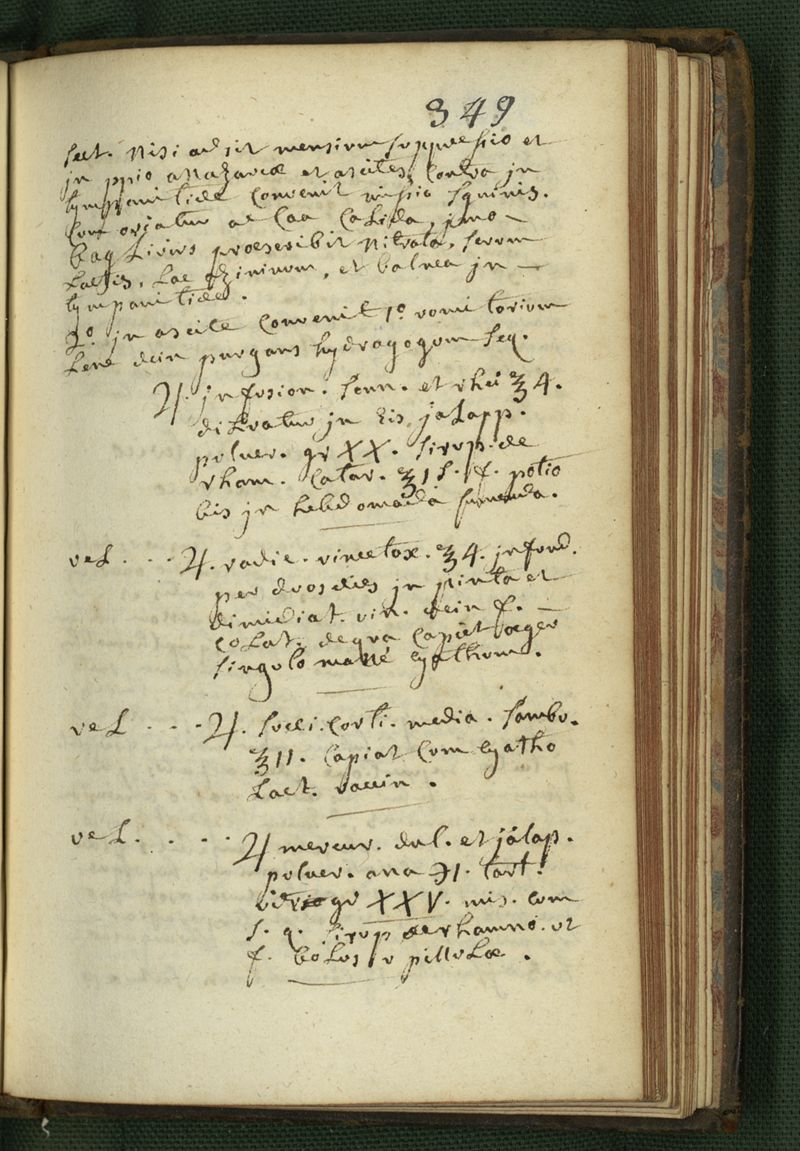 349
sect. Nisi adsit mensium suppressio et
in ppio anazarcæ et ascites, Contra in
tympanitide convenit missio sguinis.
Cum oriatur a Caa Calida, imo -
bag Livivs proescribit Nitrata, serum
Lactis, Lac asininum, et balnea in -
tympanitide.
2.º in ascite Convenit 1.º vomitorium
Lene dein purgans hydragogum seq.
♃. infusion. senn. et rhei ℥ 4.
diluatur in Eis, jalapp.
pulver. gr XX. sirup. de
rham. Catar. ℥ 1 s. f. potio
bis in hebdomada sumenda.
vel . . . ♃. radic. vincetox. ℥ 4. infund.
per duos dies in pinta et
dimidiat. vin. dein f. -
colat. de qua Capiet æger
singulo mane Cyathum.
vel . . . ♃. succi. Corti. media. sambu.
℥ 11. Capiat Com Cyatho
Lact. vaccin.
vel . . . . ♃ mercur. dul. et jalap.
pulver. ana ℈1. tart.
gr XXV. mis. com
s. q. sirup de rhamno. ut
f. bolus v pillulæ.